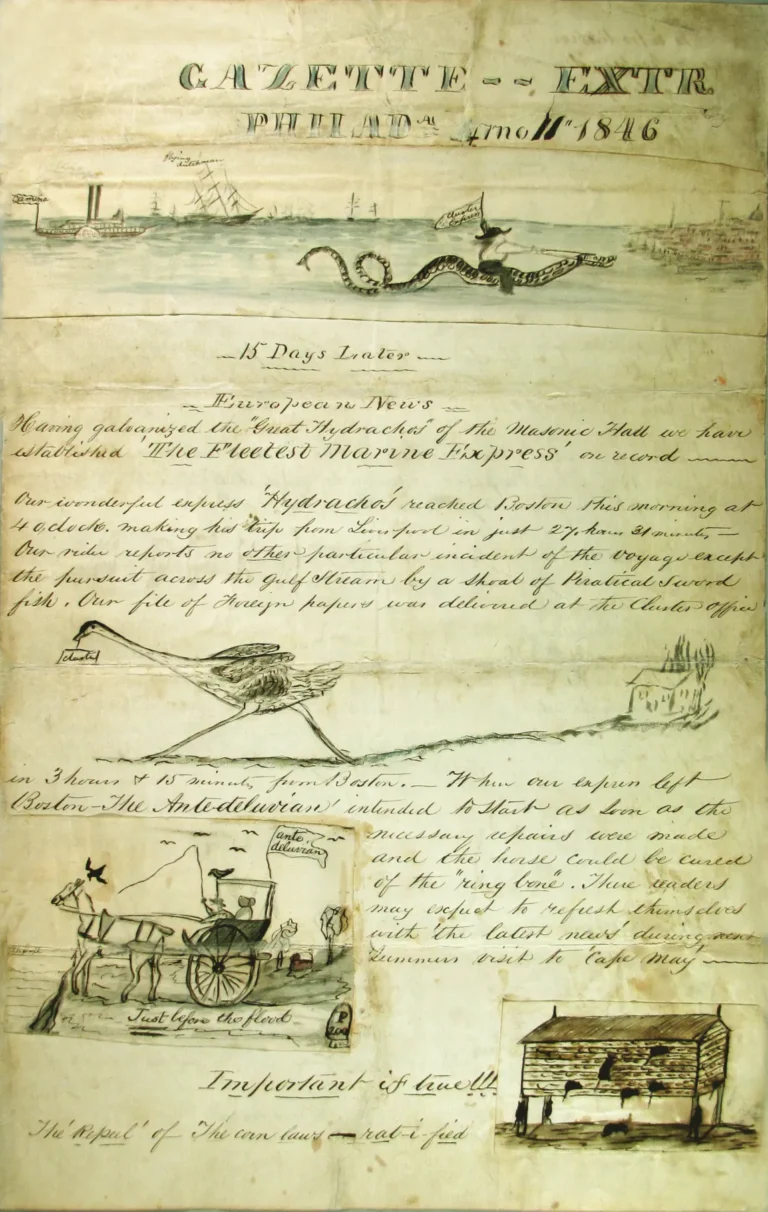 GAZETTE -- EXTR
PHILAD^A 4mo 11" 1846
Flying
Dutchman
Cluster
Express
— 15 Days Later —
— European News —
Having galvanized the "Great Hydrachos" of the Masonic Hall we have
established 'The Fleetest Marine Express' on record —
Our wonderful express 'Hydrachos' reached Boston this morning at
4 oclock. making his trip from Liverpool in just 27, hours 31 minutes —
Our rider reports no other particular incident of the voyage except
the pursuit across the Gulf Stream by a shoal of Piratical Sword
fish. Our file of Foreign papers was delivered at the Cluster office
cluster
in 3 hours & 15 minutes from Boston. — When our express left
Boston — The Ante-deluvian' intended to start as soon as the
necessary repairs were made
and the horse could be cured
of the "ring bone". Those readers
may expect to refresh themselves
with 'the latest news' during next
Summers visit to 'Cape May' —
ante
deluvian
Just before the flood
Important if true!!!
The 'Repeal' of 'The corn laws — rat-i-fied